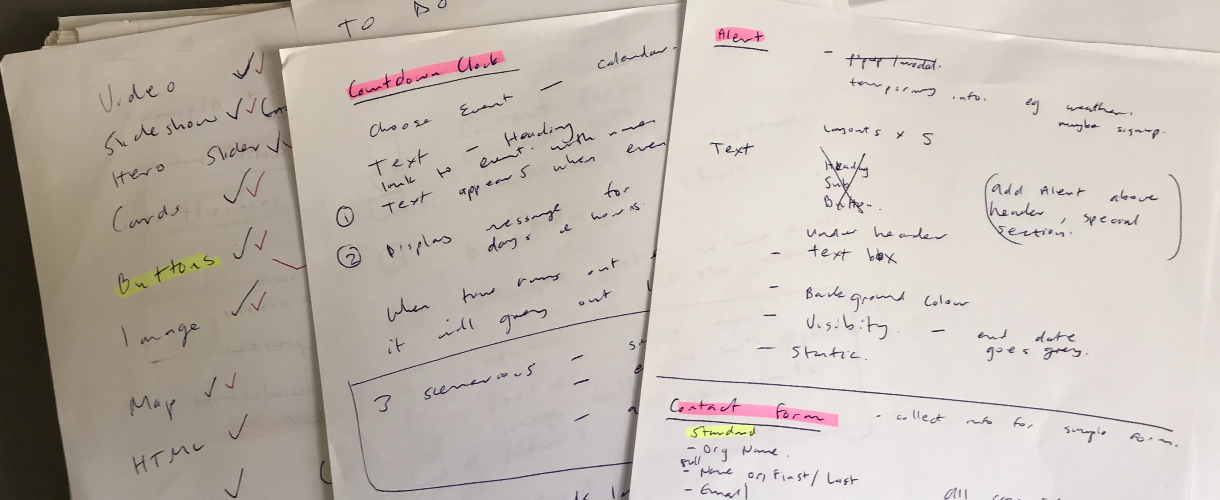 TO DO
Video
Slideshow
Hero Slider
Cards
Buttons
Image
Map
HTML
Countdown Clock
Choose Event — calendar.
Text — Heading
link to event. with
Text appears when even
① 
② Display message for
days & hours.
When time runs out
it will grey out
3 scenerious —
Alert
- popup/modal.
temporary info. eg weather.
maybe signup.
Layouts x 5
Text
Heading
Sub
Button.
(add Alert above
header, special
section.)
under header
- text box
- Background Colour
- Visibity. — end date
goes grey.
- Static.
Contact Form - collect info for simple form.
Standard
- Org Name.
full
- Name or First/Last
- Email
all